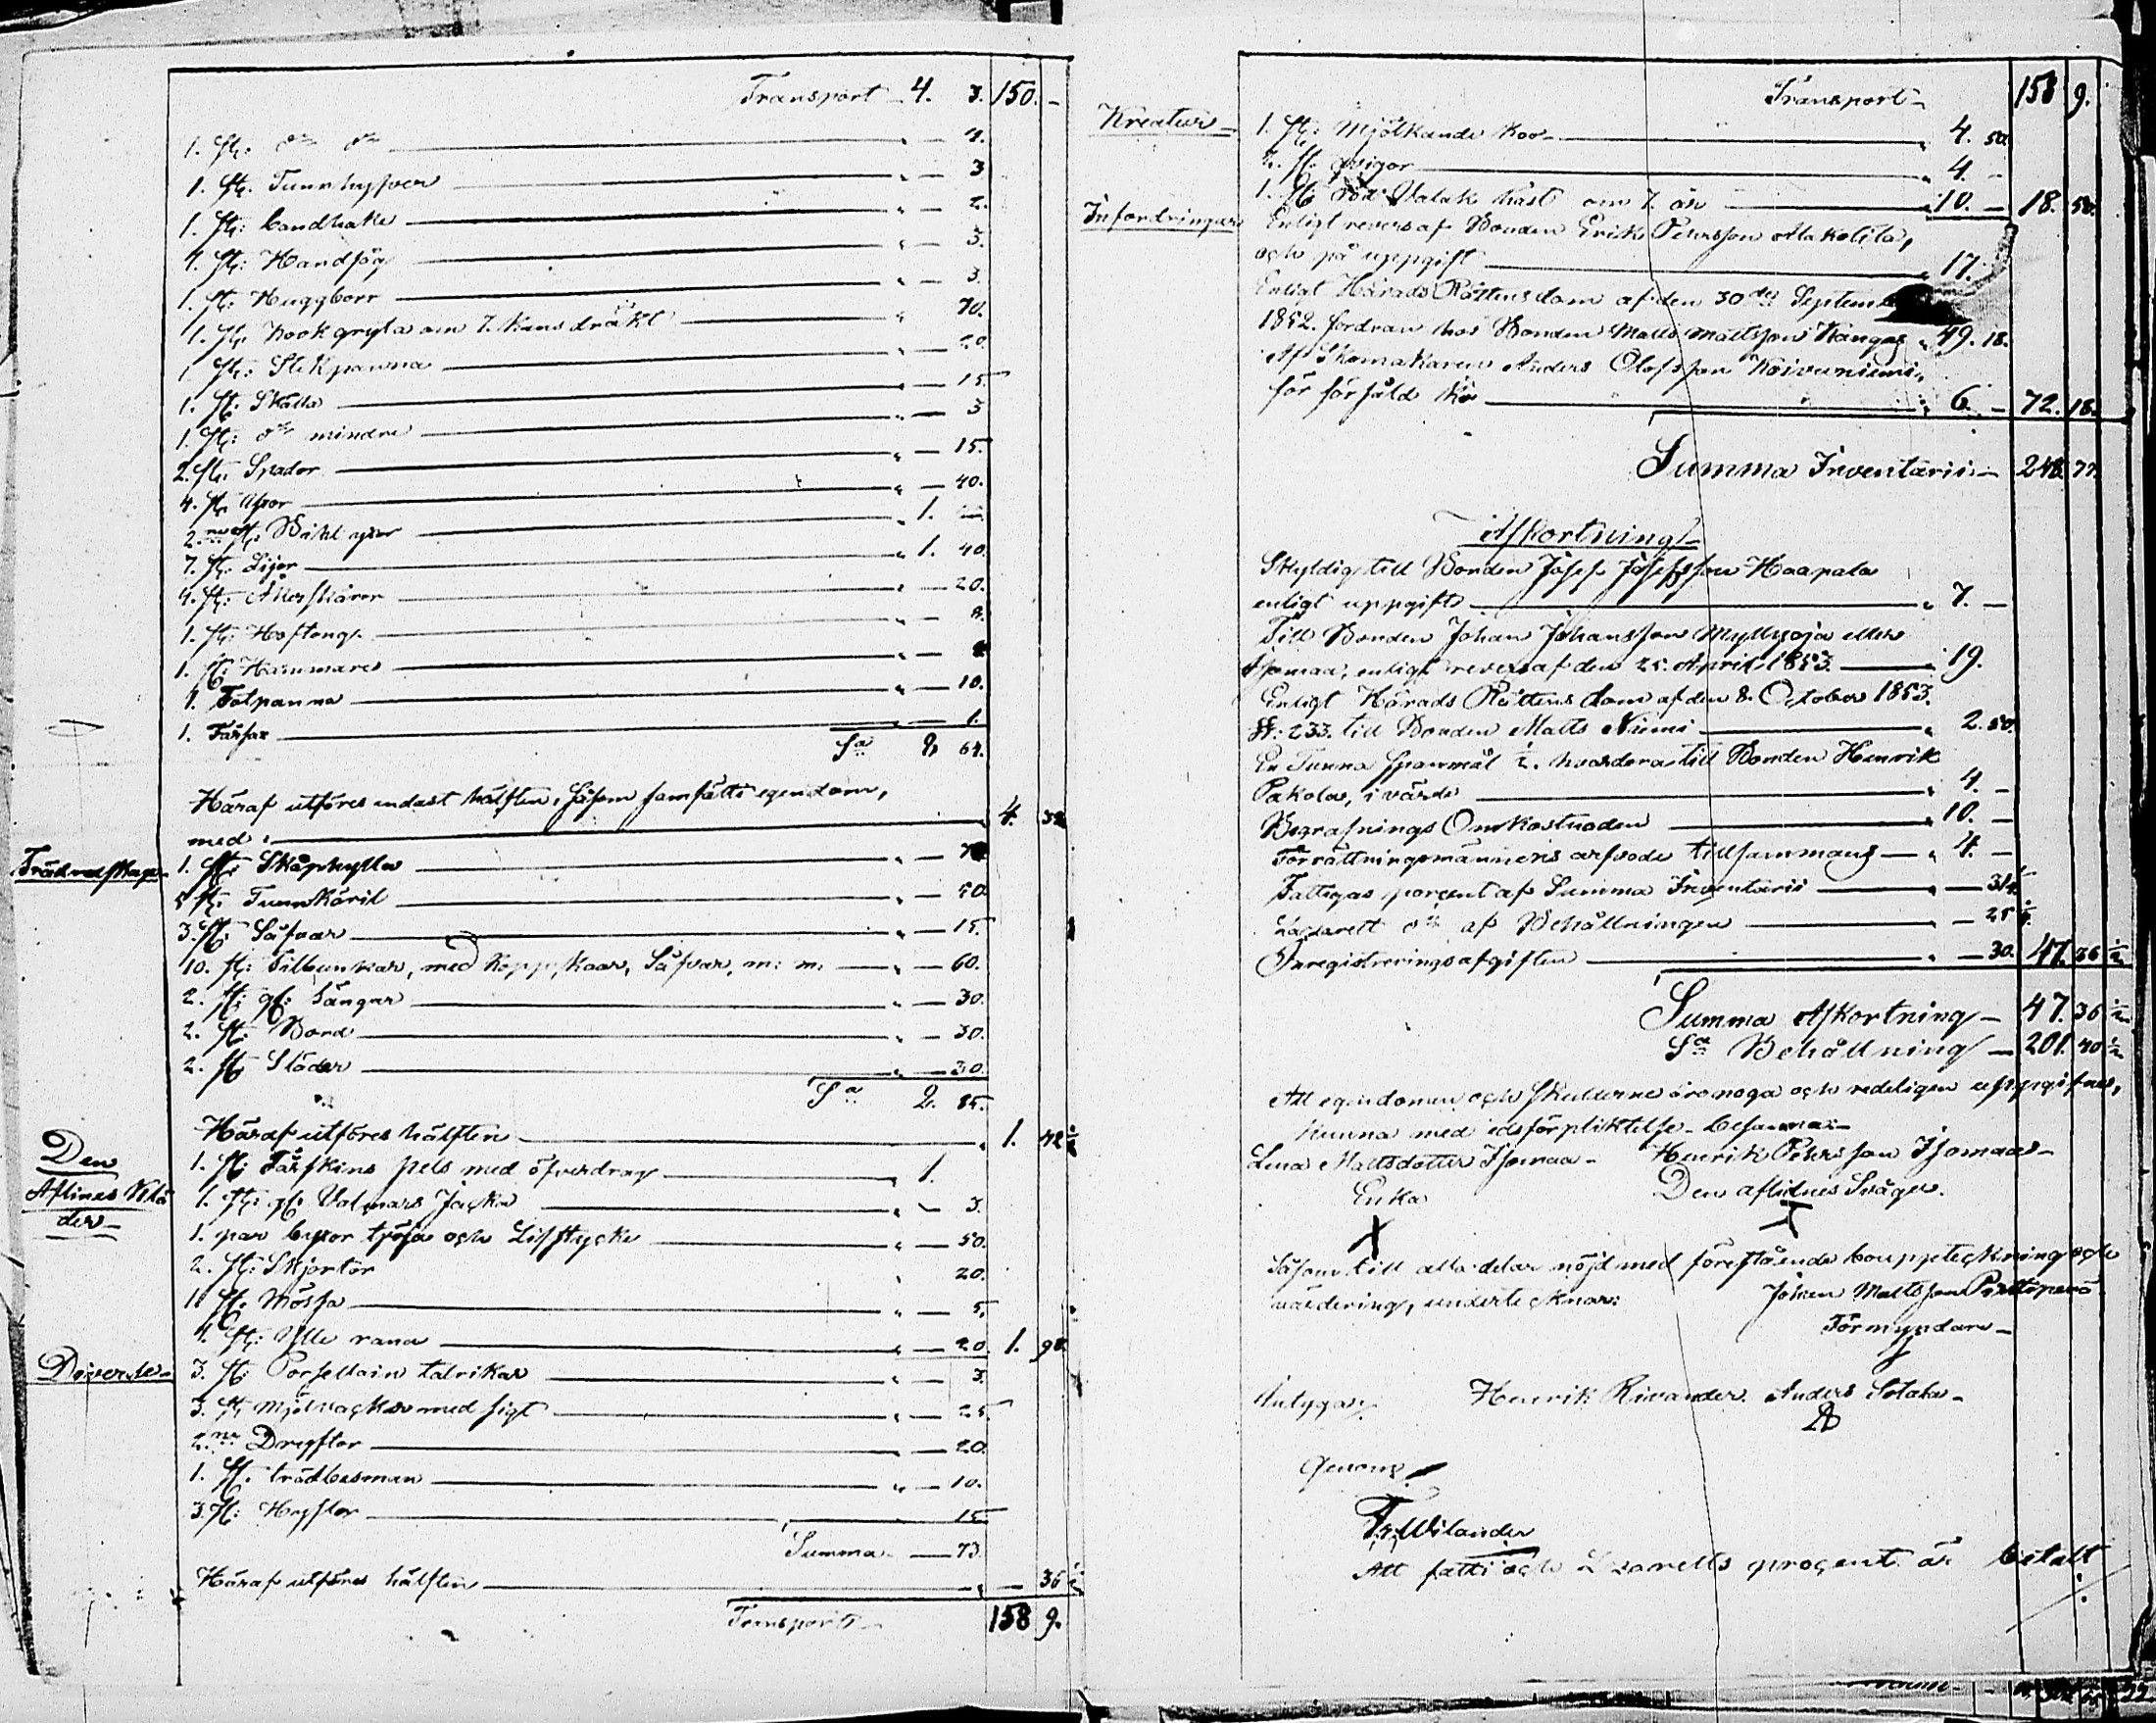 Transport 4. 3. 150. -
1. st: d:o d:o " — 4.
1. st: Tunnhyfver " — 3
1. st: bandhake " — 2.
1. st: Handsåg " — 3.
1. st: Huggborr " — 3.
1. st: Kookgryta om 7. kans dräkt " 70.
1 st: Stekpanna " — 20.
1. st: Skälla " — 15.
1. st: d:o mindre " — 3
2. st: Spador " — 15.
4. st: " — 40.
2.ne st: " 1. —
7. st: Lijor " 1. 40.
4. st: Åkerskäror " — 20.
1. st: Hoftong. " — 8.
1. st: Hammare " —
1. Fotpanna " — 10.
1. — 1.
S:a 8. 64.
Häraf utföres endast hälften, såsom samfälte egendom,
med " 4. 32
Trädredskap 1. st: Skåphylla " —
5 st: Tunnkäril " — 50.
3. st: Såfvar " — 15.
10. st: Tilbunkar, med Koppskaar, Såfvar, m: m: " — 60.
2. st: gl: Sängar " — 30.
2. st: Bord " — 30.
2. st: Slädar " — 30.
S:a 2. 85.
Häraf utföres hälften " 1. 42 ½
Den
Aflidnes Klä
der
1. st: Fårskins pels med öfverdrag " 1.
1. st: gl: Valmars Jacka " — 3.
1. par byxor tröja och Lifstycke " — 50.
2. st: Skjortor " 20.
1. st: Mössa " — 5.
1. st: Ylle rana " — 20. 1. 98
Diverse 3. st: Porsellain talrikar " — 3.
3. st: med sigt " — 25.
2.ne Dregftor " — 20.
1. st: trädbesman " — 10.
3. st: Heglor 15.
Summa — 73.
Häraf utföres hälften " — 36 ½
Transport 158 9.
Transport 158 9.
Kreatur 1. st: Mjölkande Koo " 4. 50.
2. st: qvigor " 4. -
1. st: röd Valak häst om 7. år " 10. - 18. 50.
Infordringar Enligt revers af Bonden Erik Persson Alakotila,
och på uppgift " 17. -
Enligt Härads Rättens dom af den 30.de September
1852. fordran hos Bonden Matts Mattsson Kangas " 49. 18.
Af Skomakaren Anders Olofsson Koivuniemi,
för försåld Ko " 6. - 72. 18.
Summa Inventarii 248. 77.
Afkortning
Skyldig till Bonden Josef Josefsson Haapala
enligt uppgift " 7. -
Till Bonden Johan Johansson Myllyoja eller
Isomaa, enligt revers af den 25. April 1853. " 19.
Enligt Härads Rättens dom af den 8. October 1853.
§: 233. till Bonden Matts Niemi " 2. 50.
En Tunna spanmål ½. hvardera till Bonden Henrik
Pakola, i värde " 4. -
Begrafnings Omkostnaden " 10. -
Förrättningsmännens arfvode tillsammans " 4. -
Fattigas porcent af Summa Inventarii " — 31
Lazarett d:o af Behållningen — 25
Inregistreringsafgiften " — 30. 47. 36 ½
Summa Afkortning 47. 36 ½
S:a Behållning 201. 40 ½
Att egendomen och skulderne äro noga och redeligen uppgifne,
kunna med edsförpliktelse besanna:
Lena Mattsdotter Isomaa Henrik Persson Isomaa
Enka Den aflidnes Svåger.
Såsom till alla delar nöjd med föreståenda bouppteckning och
värdering, undertecknar: Johan Mattsson Pirttiperä
Förmyndare
Intygar Henrik Rivander. Anders Sotaka
Genom
Fr: Wilander
Att fatti och Lazaretts procent är betalt